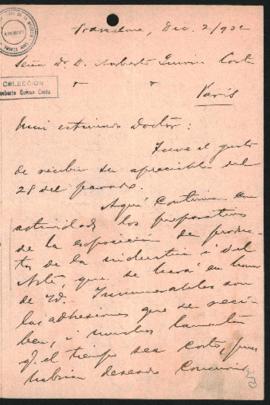 Dic. 2/902
Señor Dr. D. Norberto Quirno Costa
Paris
COLECCION
Norberto Quirno Costa
Mui estimado Doctor:
Tuve el gusto
de recibir su apreciable del
28 del pasado.
Aquí continúan con
actividad los preparativos
de la esposicion de produc-
tos de la industria i del
Arte, que se hará en honor
de Ud. Innumerables son
las adhesiones que se reci-
ben, i muchos lamentan
q. el tiempo sea corto, pues
habrian deseado concurrir